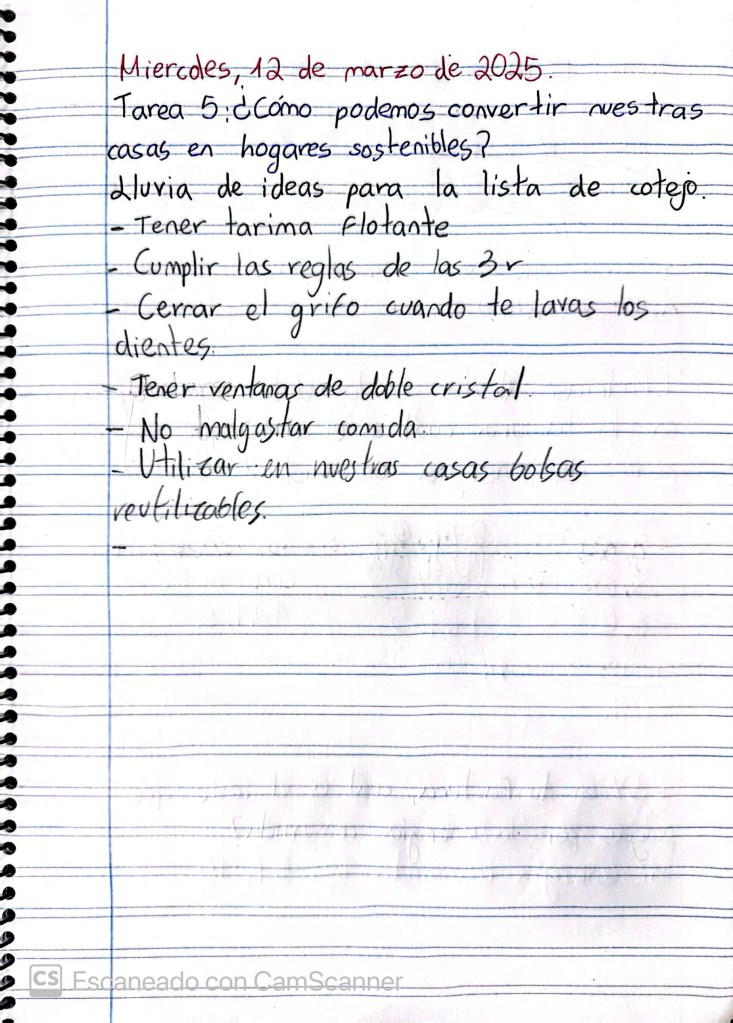 Miercoles, 12 de marzo de 2025.
Tarea 5: ¿Cómo podemos convertir nuestras
casas en hogares sostenibles?
Lluvia de ideas para la lista de cotejo.
- Tener tarima flotante
- Cumplir las reglas de las 3r
- Cerrar el grifo cuando te lavas los
dientes.
- Tener ventanas de doble cristal.
- No malgastar comida.
- Utilizar en nuestras casas bolsas
reutilizables.
-
CS Escaneado con CamScanner